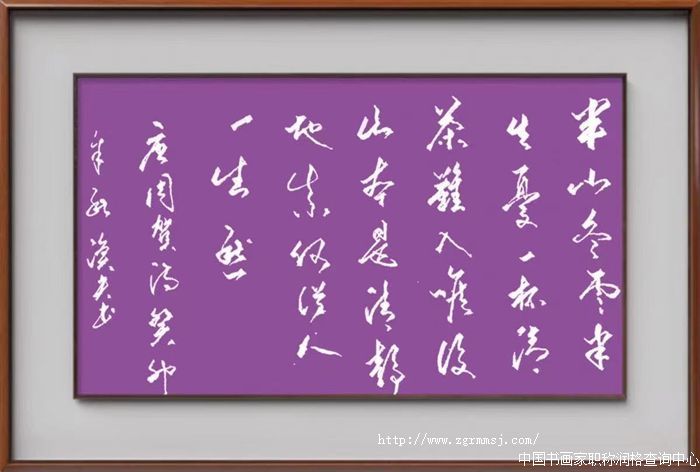 半山冬半
生憂一杯清
茶難入喉
山本是清静
地奈何人
一生愁
唐周賀詩癸卯
年漢夫书
http://www.zgrmmsj.com/
中国书画家职称润格查询中心